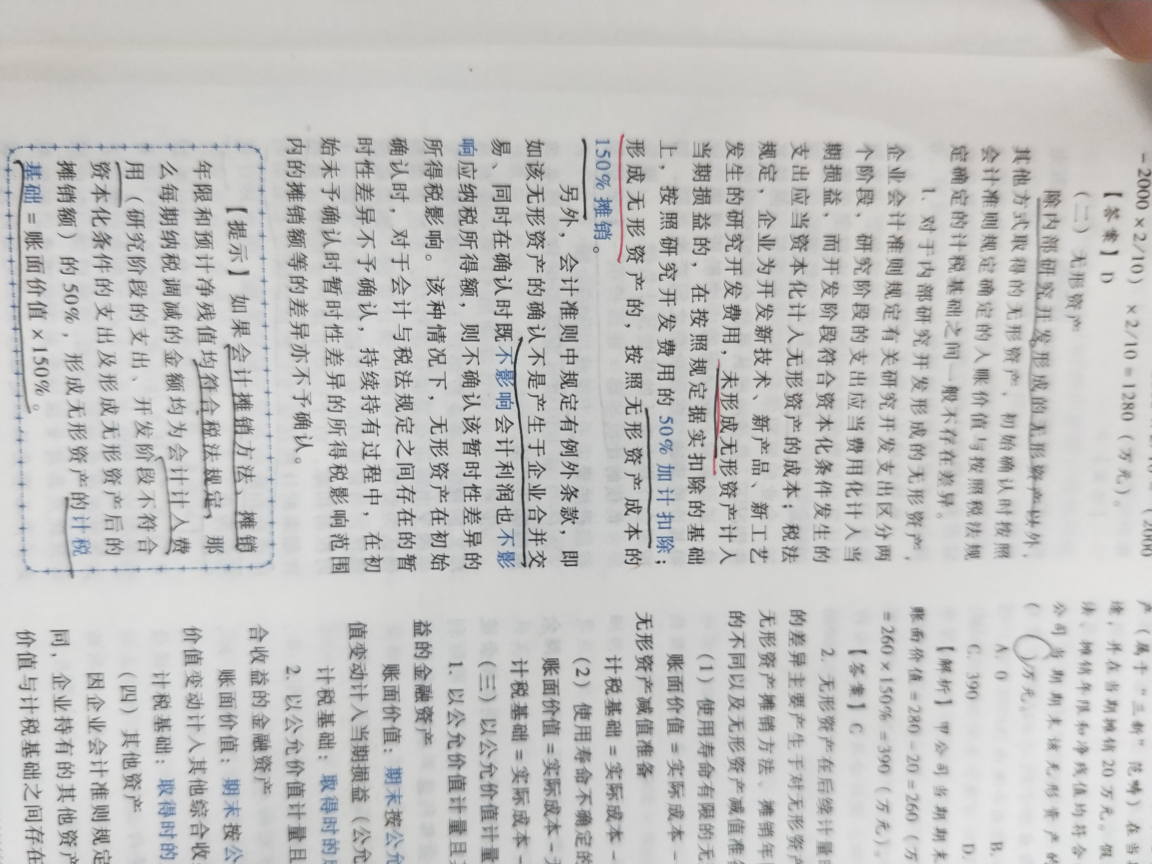 -2000×2/10）×2/10=1280（万元）。
【答案】D
（二）无形资产
除内部研究开发形成的无形资产以外，
其他方式取得的无形资产，初始确认时按照
会计准则规定确定的入账价值与按照税法规
定确定的计税基础之间一般不存在差异。
1. 对于内部研究开发形成的无形资产，
企业会计准则规定有关研究开发支出区分两
个阶段，研究阶段的支出应当费用化计入当
期损益，而开发阶段符合资本化条件发生的
支出应当资本化计入无形资产的成本；税法
规定，企业为开发新技术、新产品、新工艺
发生的研究开发费用，未形成无形资产计入
当期损益的，在按照规定据实扣除的基础
上，按照研究开发费用的50%加计扣除；
形成无形资产的，按照无形资产成本的
150%摊销。
另外，会计准则中规定有例外条款，即
如该无形资产的确认不是产生于企业合并交
易、同时在确认时既不影响会计利润也不影
响应纳税所得额，则不确认该暂时性差异的
所得税影响。该种情况下，无形资产在初始
确认时，对于会计与税法规定之间存在的暂
时性差异不予确认，持续持有过程中，在初
始未予确认时暂时性差异的所得税影响范围
内的摊销额等的差异亦不予确认。
【提示】如果会计摊销方法、摊销
年限和预计净残值均符合税法规定，那
么每期纳税调减的金额均为会计计入费
用（研究阶段的支出、开发阶段不符合
资本化条件的支出及形成无形资产后的
摊销额）的50%，形成无形资产的计税
基础=账面价值×150%。
产（属于“三新”范畴）在当
并在当期摊销20万元。假
摊销年限和净残值均符合
公司当期期末该无形资产的
（ ）万元。
A. 0 B.
C. 390 D.
【解析】甲公司当期期末
账面价值=280-20=260（万
=260×150%=390（万元）。
【答案】C
2. 无形资产在后续计量
的差异主要产生于对无形资产
无形资产摊销方法、摊销年
的不同以及无形资产减值准
（1）使用寿命有限的无
账面价值=实际成本-
无形资产减值准备
计税基础=实际成本-
（2）使用寿命不确定的
账面价值=实际成本-
计税基础=实际成本-
（三）以公允价值计量
1. 以公允价值计量且
益的金融资产
账面价值：期末按公允
值变动计入当期损益（公允
计税基础：取得时的
2. 以公允价值计量且
合收益的金融资产
账面价值：期末按公
价值变动计入其他综合收
计税基础：取得时的
（四）其他资产
因企业会计准则规定
同，企业持有的其他资产
价值与计税基础之间存在